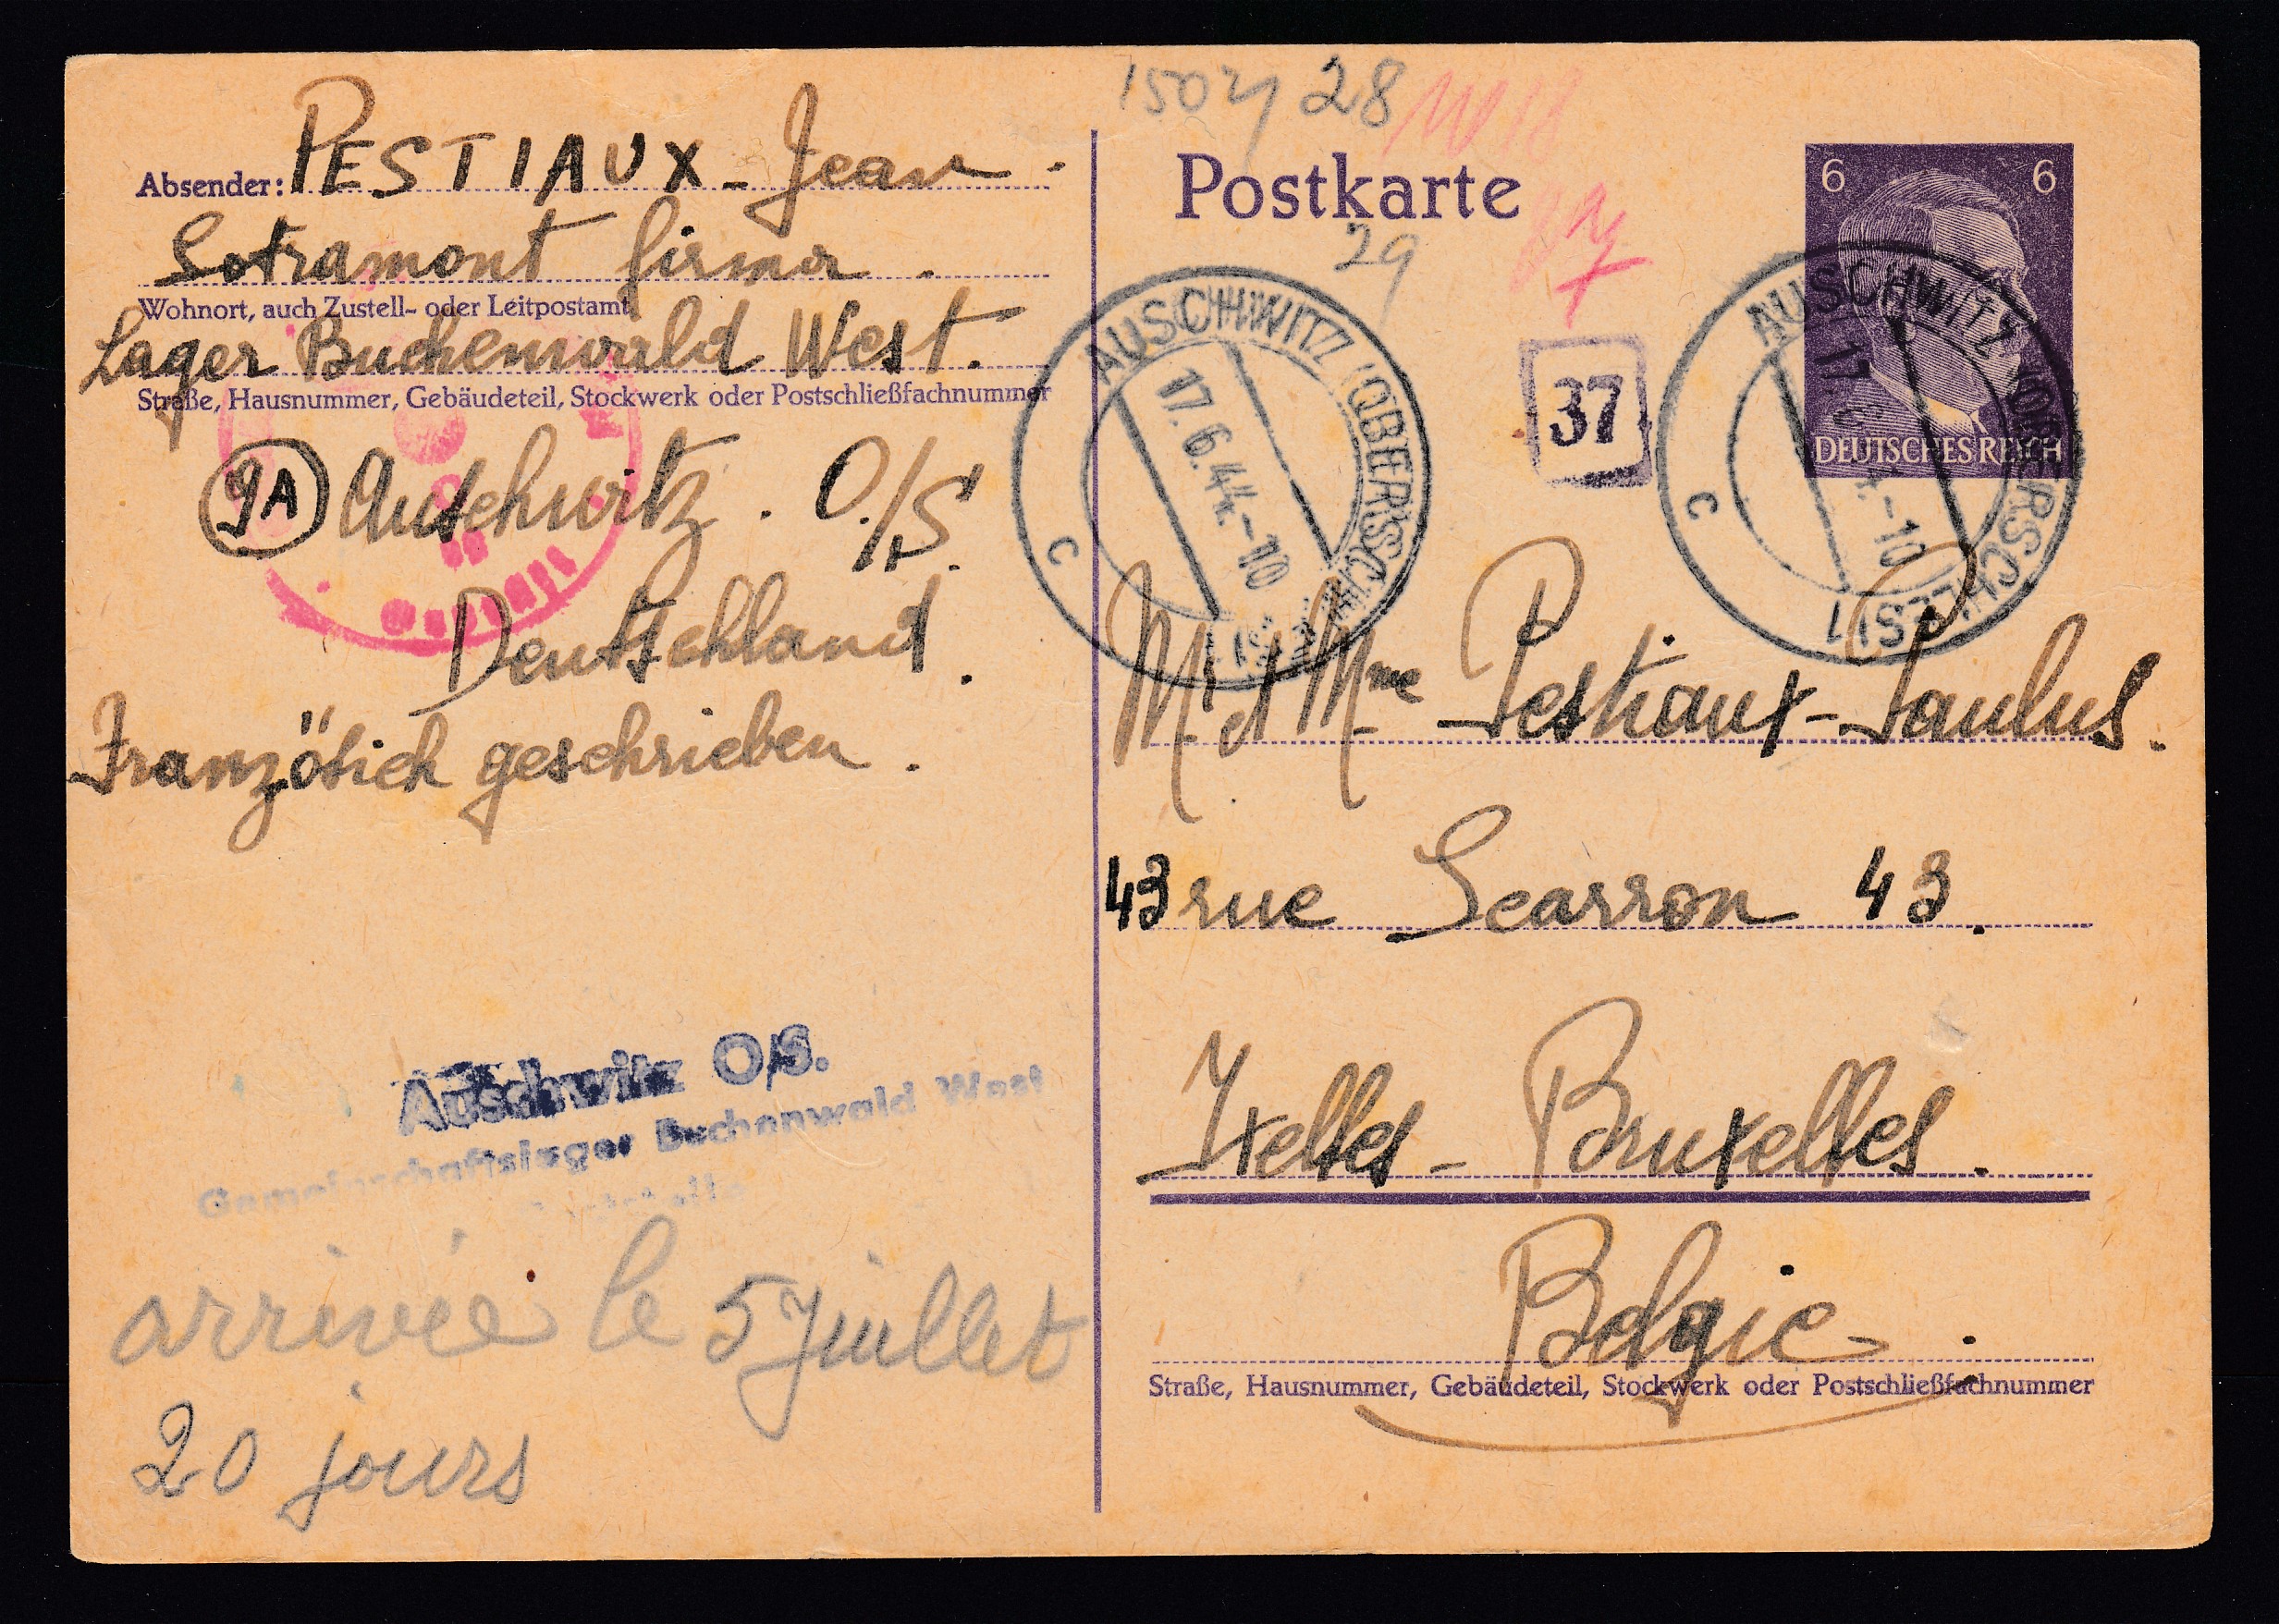 Absender: PESTIAUX - Jean.
Sotramont firma.
Wohnort, auch Zustell- oder Leitpostamt
Lager Buchenwald West.
Straße, Hausnummer, Gebäudeteil, Stockwerk oder Postschließfachnummer
9A Auschwitz. O./S.
Deutschland.
Französich geschrieben.
Auschwitz O/S.
Gemeinschaftslager Buchenwald West
arrivée le 5 Juillet
20 jours
28
Postkarte
29
37
6 6
DEUTSCHES REICH
AUSCHWITZ (OBERSCHLES) 1
17.6.44.-10
c
AUSCHWITZ (OBERSCHLES) 1
17.6.44.-10
c
Mr et Mme Pestiaux-Paulus.
43 rue Scarron 43.
Ixelles - Bruxelles.
Belgie.
Straße, Hausnummer, Gebäudeteil, Stockwerk oder Postschließfachnummer